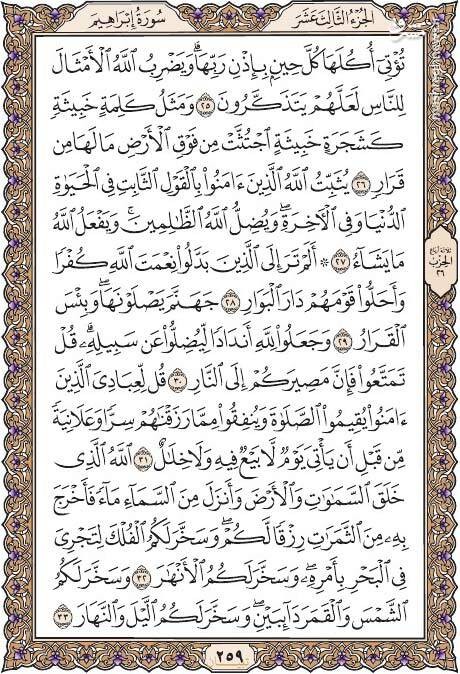 الجُزْءُ الثَّالِثَ عَشَرَ سُورَةُ إِبْرَاهِيمَ
تُؤْتِيٓ أُكُلَهَا كُلَّ حِينِۭ بِإِذۡنِ رَبِّهَاۗ وَيَضۡرِبُ ٱللَّهُ ٱلۡأَمۡثَالَ
لِلنَّاسِ لَعَلَّهُمۡ يَتَذَكَّرُونَ ٢٥ وَمَثَلُ كَلِمَةٍ خَبِيثَةٖ
كَشَجَرَةٍ خَبِيثَةٍ ٱجۡتُثَّتۡ مِن فَوۡقِ ٱلۡأَرۡضِ مَا لَهَا مِن
قَرَارٖ ٢٦ يُثَبِّتُ ٱللَّهُ ٱلَّذِينَ ءَامَنُواْ بِٱلۡقَوۡلِ ٱلثَّابِتِ فِي ٱلۡحَيَوٰةِ
ٱلدُّنۡيَا وَفِي ٱلۡأٓخِرَةِۖ وَيُضِلُّ ٱللَّهُ ٱلظَّٰلِمِينَۚ وَيَفۡعَلُ ٱللَّهُ
مَا يَشَآءُ ٢٧ ۞ أَلَمۡ تَرَ إِلَى ٱلَّذِينَ بَدَّلُواْ نِعۡمَتَ ٱللَّهِ كُفۡرٗا
وَأَحَلُّواْ قَوۡمَهُمۡ دَارَ ٱلۡبَوَارِ ٢٨ جَهَنَّمَ يَصۡلَوۡنَهَاۖ وَبِئۡسَ
ٱلۡقَرَارُ ٢٩ وَجَعَلُواْ لِلَّهِ أَندَادٗا لِّيُضِلُّواْ عَن سَبِيلِهِۦۗ قُلۡ
تَمَتَّعُواْ فَإِنَّ مَصِيرَكُمۡ إِلَى ٱلنَّارِ ٣٠ قُل لِّعِبَادِيَ ٱلَّذِينَ
ءَامَنُواْ يُقِيمُواْ ٱلصَّلَوٰةَ وَيُنفِقُواْ مِمَّا رَزَقۡنَٰهُمۡ سِرّٗا وَعَلَانِيَةٗ
مِّن قَبۡلِ أَن يَأۡتِيَ يَوۡمٞ لَّا بَيۡعٞ فِيهِ وَلَا خِلَٰلٌ ٣١ ٱللَّهُ ٱلَّذِي
خَلَقَ ٱلسَّمَٰوَٰتِ وَٱلۡأَرۡضَ وَأَنزَلَ مِنَ ٱلسَّمَآءِ مَآءٗ فَأَخۡرَجَ
بِهِۦ مِنَ ٱلثَّمَرَٰتِ رِزۡقٗا لَّكُمۡۖ وَسَخَّرَ لَكُمُ ٱلۡفُلۡكَ لِتَجۡرِيَ
فِي ٱلۡبَحۡرِ بِأَمۡرِهِۦۖ وَسَخَّرَ لَكُمُ ٱلۡأَنۡهَٰرَ ٣٢ وَسَخَّرَ لَكُمُ
ٱلشَّمۡسَ وَٱلۡقَمَرَ دَآئِبَيۡنِۖ وَسَخَّرَ لَكُمُ ٱلَّيۡلَ وَٱلنَّهَارَ ٣٣
الحِزْب
٢٦
٢٥٩